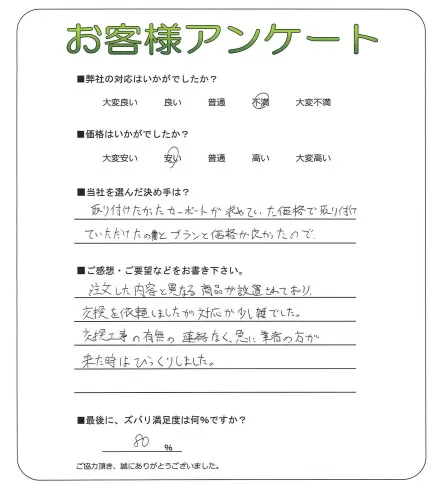 お客様アンケート
■弊社の対応はいかがでしたか?
大変良い 良い 普通 不満 大変不満
■価格はいかがでしたか?
大変安い 安い 普通 高い 大変高い
■当社を選んだ決め手は?
取り付けたかったカーポートが求めていた価格で取り付け
ていただけたのとプランと価格が良かったので
■ご感想・ご要望などをお書き下さい。
注文した内容と異なる商品が設置されており、
交換を依頼しましたが対応が少し雑でした。
交換工事の有無の連絡なく、急に業者の方が
来た時はびっくりしました。
■最後に、ズバリ満足度は何%ですか?
80 %
ご協力頂き、誠にありがとうございました。